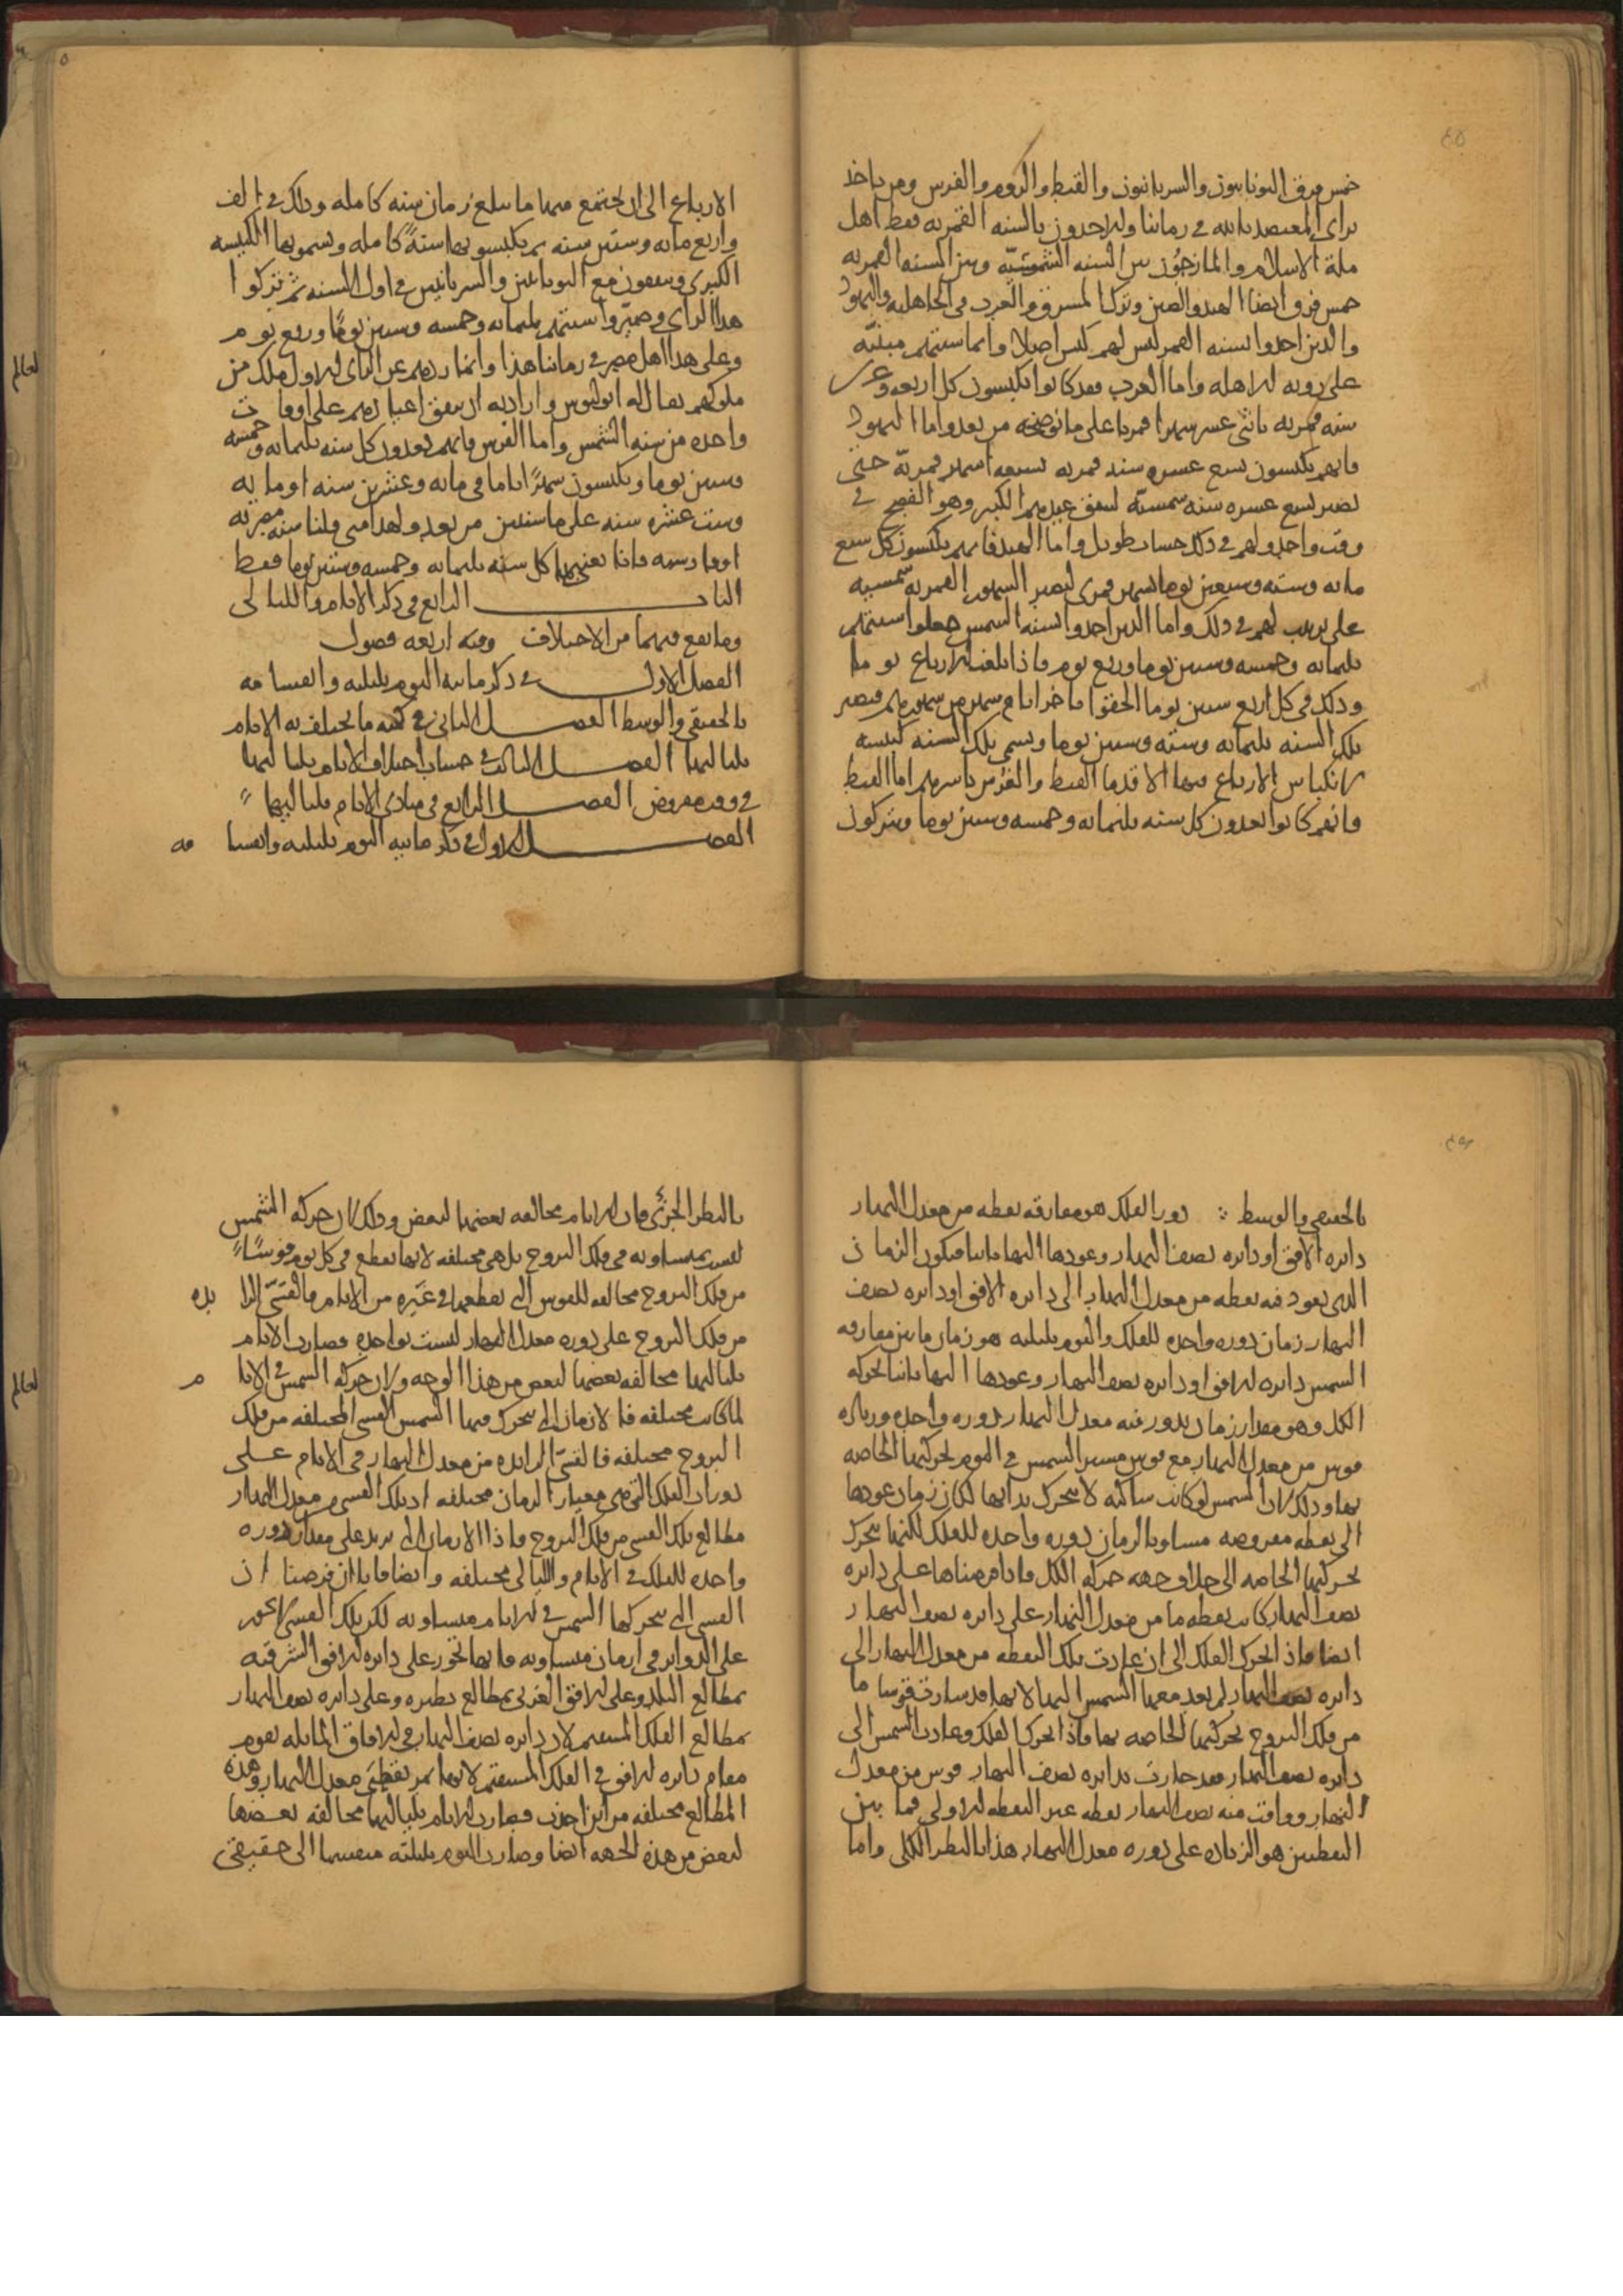 خمس فرق اليونانيون والسريانيون والقبط والروم والفرس ومن ياخذ
براى المعتضد بالله في زماننا والاخذون بالسنه القمريه فقط اهل
ملة الاسلام والمازجون بين السنه الشمسيّه وبين السنه القمريه
خمس فرق ايضا الهند والصين وترك المشرق والعرب في الجاهليه واليهود
والذين اخذوا بسنه القمر ليس لهم كبس اصلا وانما سنتهم مبنيّه
على رويه الاهله واما العرب فقد كانوا يكبسون كل اربعه وعشرين
سنه قمريه باثنى عشر شهرا قمريا على ما نوضحه من بعد واما اليهود
فانهم يكبسون تسع عشره سنه قمريه بسبعه اشهر قمريّه حتى
تصير تسع عشره سنه شمسيّه ليتفق عيدهم الكبير وهو الفصح في
وقت واحد ولهم في ذلك حساب طويل واما الهند فانهم يكبسون كل تسع
مائه وسته وسبعين يوما بشهر قمرى لتصير الشهور القمريه شمسيه
على ترتيب لهم في ذلك واما الذين اخذوا بسنه الشمس جعلوا سنتهم
ثلثمائه وخمسه وستين يوما وربع يوم فاذا بلغت الارباع يوما
وذلك في كل اربع سنين يوما الحقوا باخر ايام شهر من شهورهم فتصير
تلك السنه ثلثمائه وسته وستين يوما وتسمى تلك السنه كبيسه
لانكباس الارباع فيها الا قدما القبط والفرس باسرهم اما القبط
فانهم كانوا يعدون كل سنه ثلثمائه وخمسه وستين يوما ويتركون
الارباع الى ان يجتمع منها ما يبلغ زمان سنه كامله وذلك في الف
واربع مائه وستين سنه ثم يكبسونها سنةً كامله ويسمونها الكبيسه
الكبرى ويتفقون مع اليونانيين والسريانيين في اول السنه ثم تركوا
هذا الراى وصيّروا سنتهم ثلثمائه وخمسه وستين يومًا وربع يوم
وعلى هذا اهل مصر في زماننا هذا وانما ردهم عن الراى الاول ملك من
ملوكهم يقال له
واحده من سنه الشمس واما الفرس فانهم يعدون كل سنه ثلثمائه وخمسه
وستين يوما ويكبسون شهرًا تاما في مائه وعشرين سنه او مايه
وست عشره سنه على ما سنبين من بعد ولهذا متى قلنا سنه مصريه
او فارسيه فانا نعنى بها كل سنه ثلثمائه وخمسه وستين يوما فقط
الباب الرابع في ذكر الايام والليالى
وما يقع فيهما من الاختلاف وفيه اربعه فصول
الفصل الاول في ذكر مائيه اليوم بليلته وانقسامه
بالحقيقى والوسط الفصل الثانى في كميه ما يختلف به الايام
بلياليها الفصل الثالث في حساب اختلاف الايام بلياليها
في وقت مفروض الفصل الرابع في مبادى الايام بلياليها
الفصل الاول في ذكر مائيه اليوم بليلته وانقسامه
بالحقيقى والوسط دور الفلك هو مفارقه نقطه من معدل النهار
دايره الافق او دايره نصف النهار وعودها اليها ثانيا فيكون الزمان
الذى يعود فيه نقطه من معدل النهار الى دايره الافق او دايره نصف
النهار زمان دوره واحده للفلك واليوم بليلته هو زمان ما بين مفارقه
الشمس دايره الافق او دايره نصف النهار وعودها اليها ثانيا بحركه
الكل وهو مقدار زمان يدور فيه معدل النهار دوره واحده وزياده
قوس من معدل النهار مع قوس مسير الشمس في اليوم بحركتها الخاصه
بها وذلك لان الشمس لو كانت ساكنه لا تتحرك بذاتها لكان زمان عودها
الى نقطه مفروضه مساويا لزمان دوره واحده للفلك لكنها تتحرك
بحركتها الخاصه الى خلاف جهه حركه الكل فاذا فرضناها على دايره
نصف النهار كانت نقطه ما من معدل النهار على دايره نصف النهار
ايضا فاذا تحرك الفلك الى ان عادت تلك النقطه من معدل النهار الى
دايره نصف النهار لم تعد معها الشمس اليها لانها قد سارت قوسا ما
من فلك البروج بحركتها الخاصه بها فاذا تحرك الفلك وعادت الشمس الى
دايره نصف النهار فقد جازت بدايره نصف النهار قوس من معدل
النهار ووافت منه نصف النهار نقطه غير النقطه الاولى فما بين
النقطتين هو الزياده على دوره معدل النهار هذا بالنظر الكلى واما
بالنظر الجزئى فان الايام مخالفه بعضها لبعض وذلك لان حركه الشمس
ليست متساويه في فلك البروج بل هى مختلفه لانها تقطع في كل يوم قوسًا
من فلك البروج مخالفه للقوس التى تقطعها في غيره من الايام فالقسى الزايده
من فلك البروج على دوره معدل النهار ليست بواحده فصارت الايام
بلياليها مخالفه بعضها لبعض من هذا الوجه ولان حركه الشمس في الايام
لما كانت مختلفه فالازمان التى تتحرك فيها الشمس القسى المختلفه من فلك
البروج مختلفه فالقسىّ الزايده من معدل النهار في الايام على
دوران الفلك التى هى معيار الزمان مختلفه اذ تلك القسى من معدل النهار
مطالع تلك القسى من فلك البروج فاذا الازمان التى تزيد على مقدار دوره
واحده للفلك في الايام والليالى مختلفه وايضا فانا ان فرضنا ان
القسى التى تتحركها الشمس في الايام متساويه لكن تلك القسى لا تجوز
على الدواير في ازمان متساويه فانها تجوز على دايره الافق الشرقيه
بمطالع البلد وعلى الافق الغربى بمطالع نظيره وعلى دايره نصف النهار
بمطالع الفلك المستقيم لان دايره نصف النهار في الافاق المائله تقوم
مقام دايره الافق في الفلك المستقيم لانها تمر بقطبى معدل النهار وهذه
المطالع مختلفه من اين اخذت فصارت الايام بلياليها مخالفه بعضها
لبعض من هذه الجهه ايضا وصار اليوم بليلته منقسما الى حقيقى